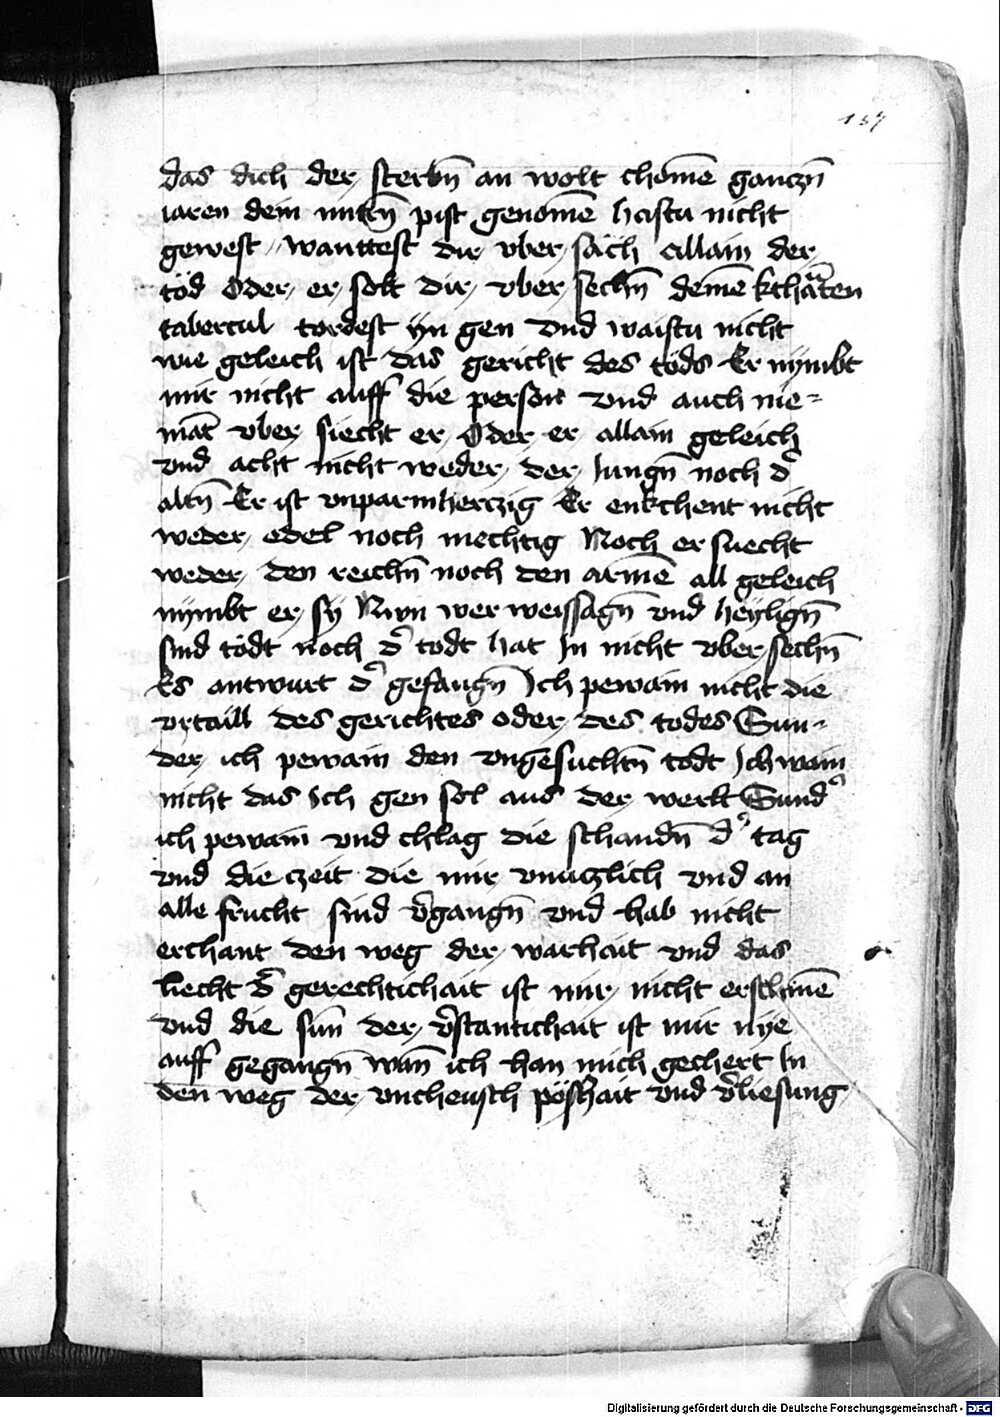 137
das dich der sterbn̄ an wolt chomē ganczn̄
iaren dein mitn̄ pist genomē hastu nicht
gewest wanttest dir vber säch allain der
töd Oder er solt dir vber sechn̄ demē
tordest yn gen vnd waistu nicht
wie geleich ist das gericht des töds Er nymbt
mir nicht auff die person vnd auch nie=
māt vber siecht er Oder er allain geleich
vnd acht nicht weder der Jungn̄ noch d̓
altn̄ Er ist vnparmherczig Er enkchent nicht
weder edel noch mechtig Noch er suecht
weder den reichn̄ noch den armē all geleich
nymbt er sy Nwn wer weissagn̄ vnd heylign̄
sind tödt noch d̓ todt hat In nicht vber sechn̄
Es antwurt d̓ gefangn̄ Ich pewain nicht die
vrtaill des gerichtes oder des todes Sun=
der ich pewain den vngesuchtn̄ todt Ich wain
nicht das Ich gen sol aus der werlt Sund̓
ich pewain vnd chlag die schandn̄ d̓ tag
vnd die czeit die mir vnuczlich vnd an
alle frucht sind v̓gangn̄ vnd hab nicht
erchant den weg der warhait vnd das
liecht d̓ gerechtichait ist mir nicht erschinē
vnd die sun̄ der v̓stantichait ist mir nye
auff gegangn̄ wan̄ ich han mich gechert In
den weg der vncheusch pöshait vnd v̓liesung
Digitalisierung gefördert durch die Deutsche Forschungsgemeinschaft - DFG